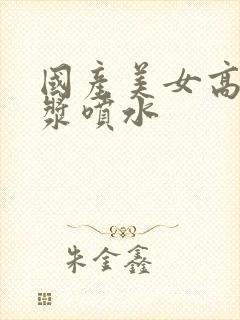 國產美女高
漿噴水
朱金鑫